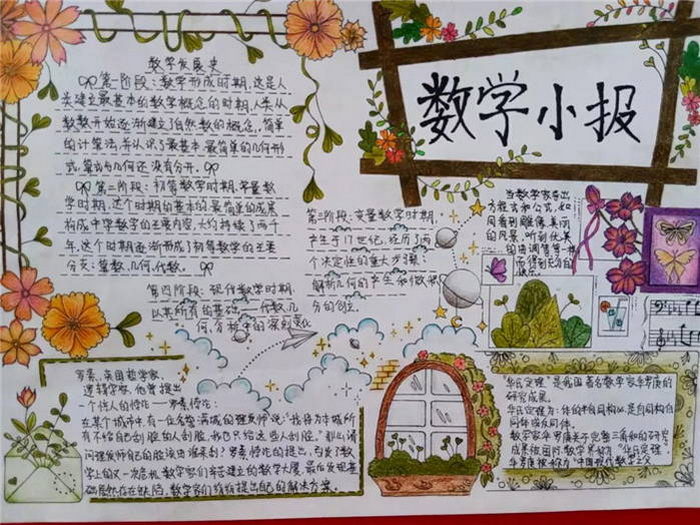 数学小报
数学发展史
第一阶段：数学形成时期，这是人
类建立最基本的数学概念的时期，人类从
数数开始逐渐建立了自然数的概念，简单
的计算法，并认识了最基本最简单的几何形
式，算术与几何还没有分开。
第二阶段：初等数学时期，常量数
学时期，这个时期的基本的最简单的成果
构成中学数学的主要内容，大约持续了两千
年，这个时期逐渐形成了初等数学的主要
分支：算数、几何、代数。
第三阶段：变量数学时期，
产生于17世纪，经历了两
个决定性的重大步骤：
解析几何的产生和微积
分的创立。
第四阶段：现代数学时期
以其所有的基础——代数、几
何、分析中的深刻变化
当数学家导出
方程式和公式，如
同看到雕像、美丽
的风景，听到优美
的曲调等等一样
而得到充分的
快乐。
罗素，英国哲学家、
逻辑学家，他曾提出
一个惊人的悖论——罗素悖论：
在某个城市中有一位名誉满城的理发师说："我将为本城所
有不给自己刮脸的人刮脸，我也只给这些人刮脸。"那么请
问理发师自己的脸该由谁来刮？罗素悖论的提出，引发了数
学上的又一次危机，数学家们辛苦建立的数学大厦，最后发现基
础居然存在缺陷，数学家们纷纷提出自己的解决方案。
"华氏定理"是我国著名数学家华罗庚的
研究成果。
华氏定理为：体的半自同构必是自同构自
同体或反同体。
数学家华罗庚关于完整三角和的研究
成果被国际数学界称为"华氏定理"，
华罗庚被称为"中国现代数学之父